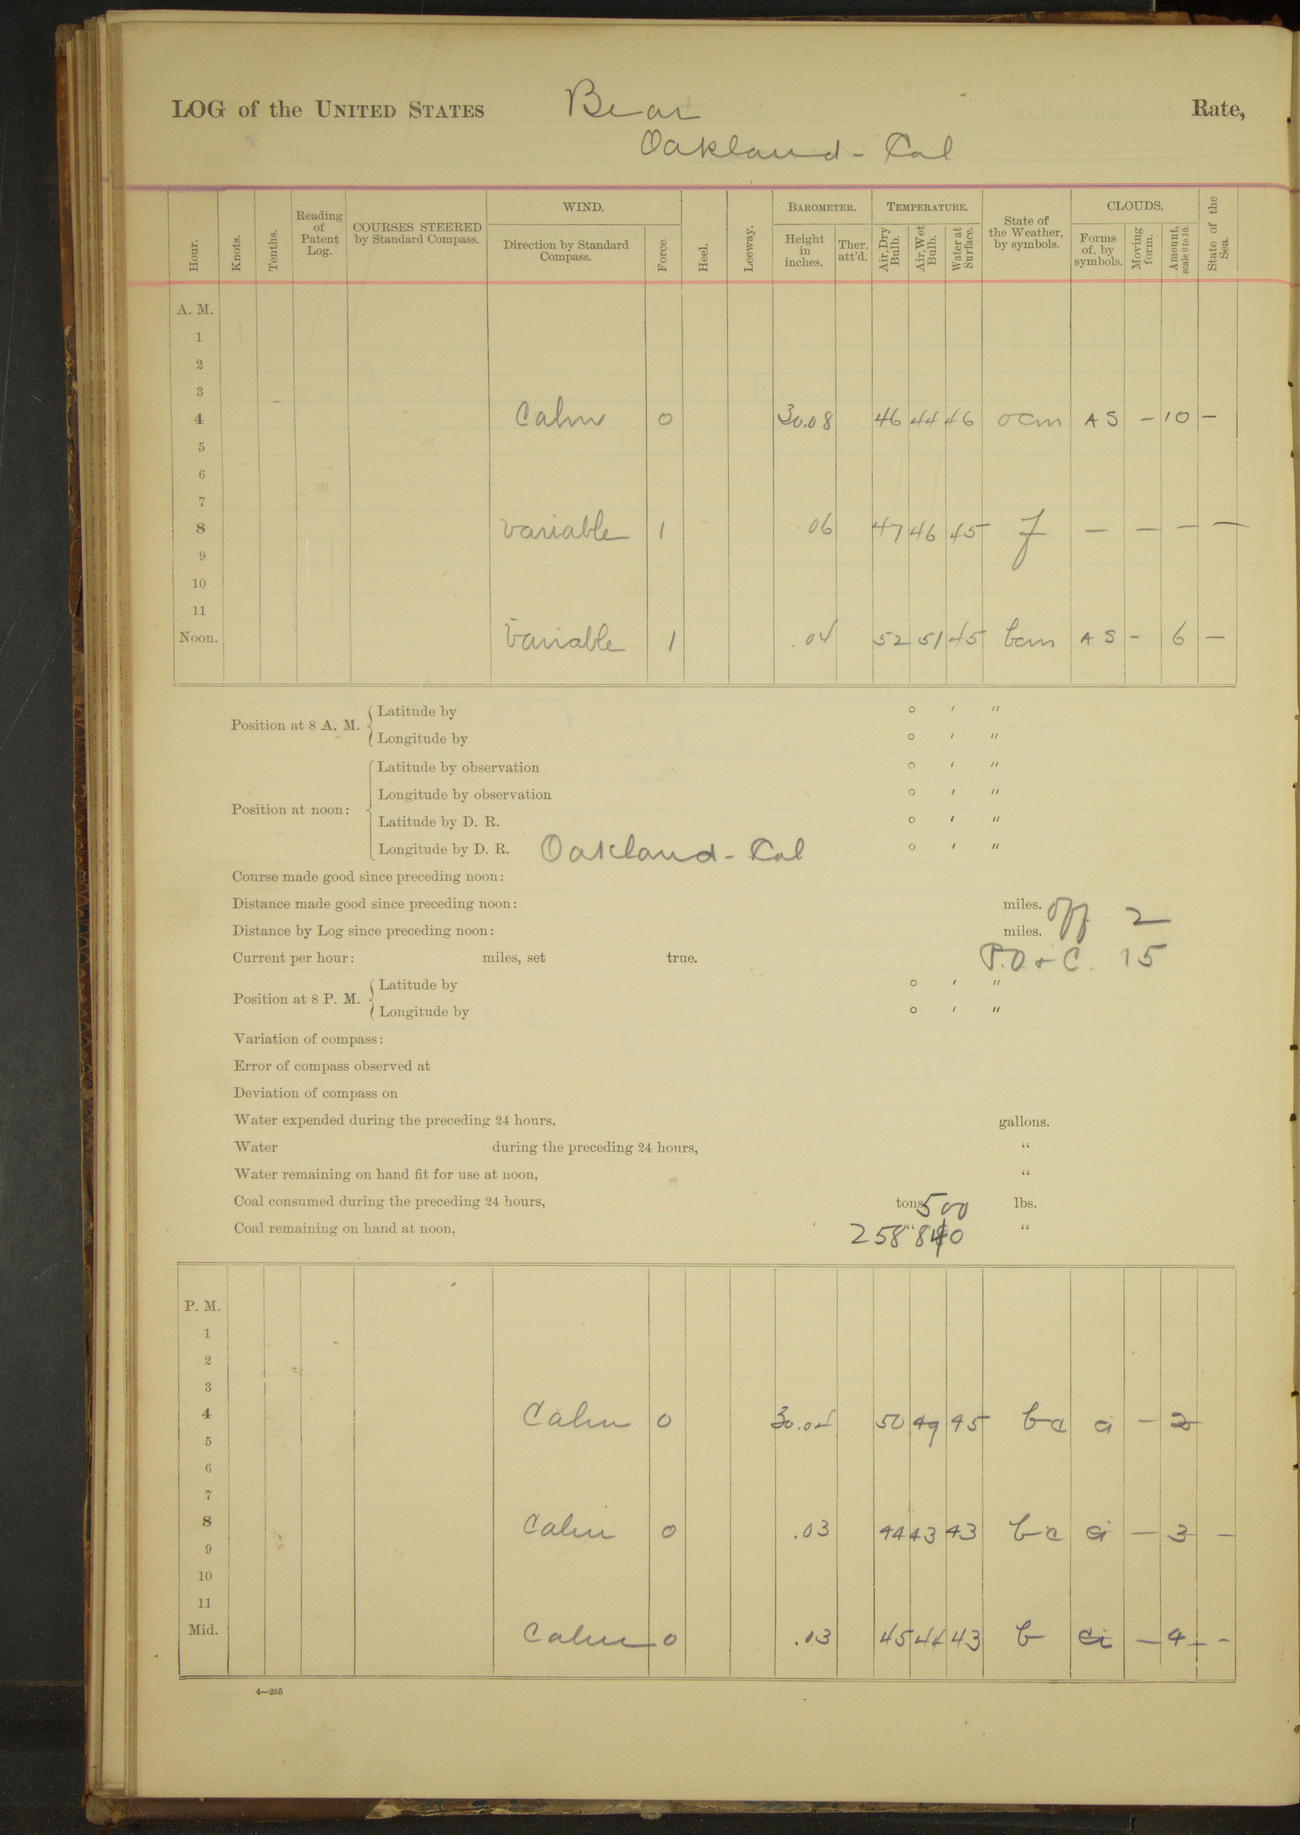 LOG of the UNITED STATES Bear Rate,
Oakland - Cal
Hour. Knots. Tenths. Reading of Patent Log. COURSES STEERED by Standard Compass. WIND. Direction by Standard Compass. Force. Heel. Leeway. BAROMETER. Height in inches. Ther. att'd. TEMPERATURE. Air, Dry Bulb. Air, Wet Bulb. Water at Surface. State of the Weather, by symbols. CLOUDS. Forms of, by symbols. Moving form. Amount, scale 0 to 10. State of the Sea.
A. M.
1
2
3
4 Calm 0 30.08 46 44 46 ocm AS - 10 -
5
6
7
8 variable 1 06 47 46 45 f - - - -
9
10
11
Noon. variable 1 .04 52 51 45 bcm AS - 6 -
Position at 8 A. M. Latitude by ° ′ ″
Longitude by ° ′ ″
Position at noon: Latitude by observation ° ′ ″
Longitude by observation ° ′ ″
Latitude by D. R. ° ′ ″
Longitude by D. R. Oakland - Cal ° ′ ″
Course made good since preceding noon:
Distance made good since preceding noon: miles. off 2
Distance by Log since preceding noon: miles.
Current per hour: miles, set true. P.O + C. 15
Position at 8 P. M. Latitude by ° ′ ″
Longitude by ° ′ ″
Variation of compass:
Error of compass observed at
Deviation of compass on
Water expended during the preceding 24 hours, gallons.
Water during the preceding 24 hours, “
Water remaining on hand fit for use at noon, “
Coal consumed during the preceding 24 hours, tons 500 lbs.
Coal remaining on hand at noon, 258 “ “
P. M.
1
2
3
4 Calm 0 30.04 50 49 45 bc ci - 2
5
6
7
8 Calm 0 .03 44 43 43 bc ci - 3 -
9
10
11
Mid. Calm 0 .03 45 44 43 b ci - 4 - -
4—265